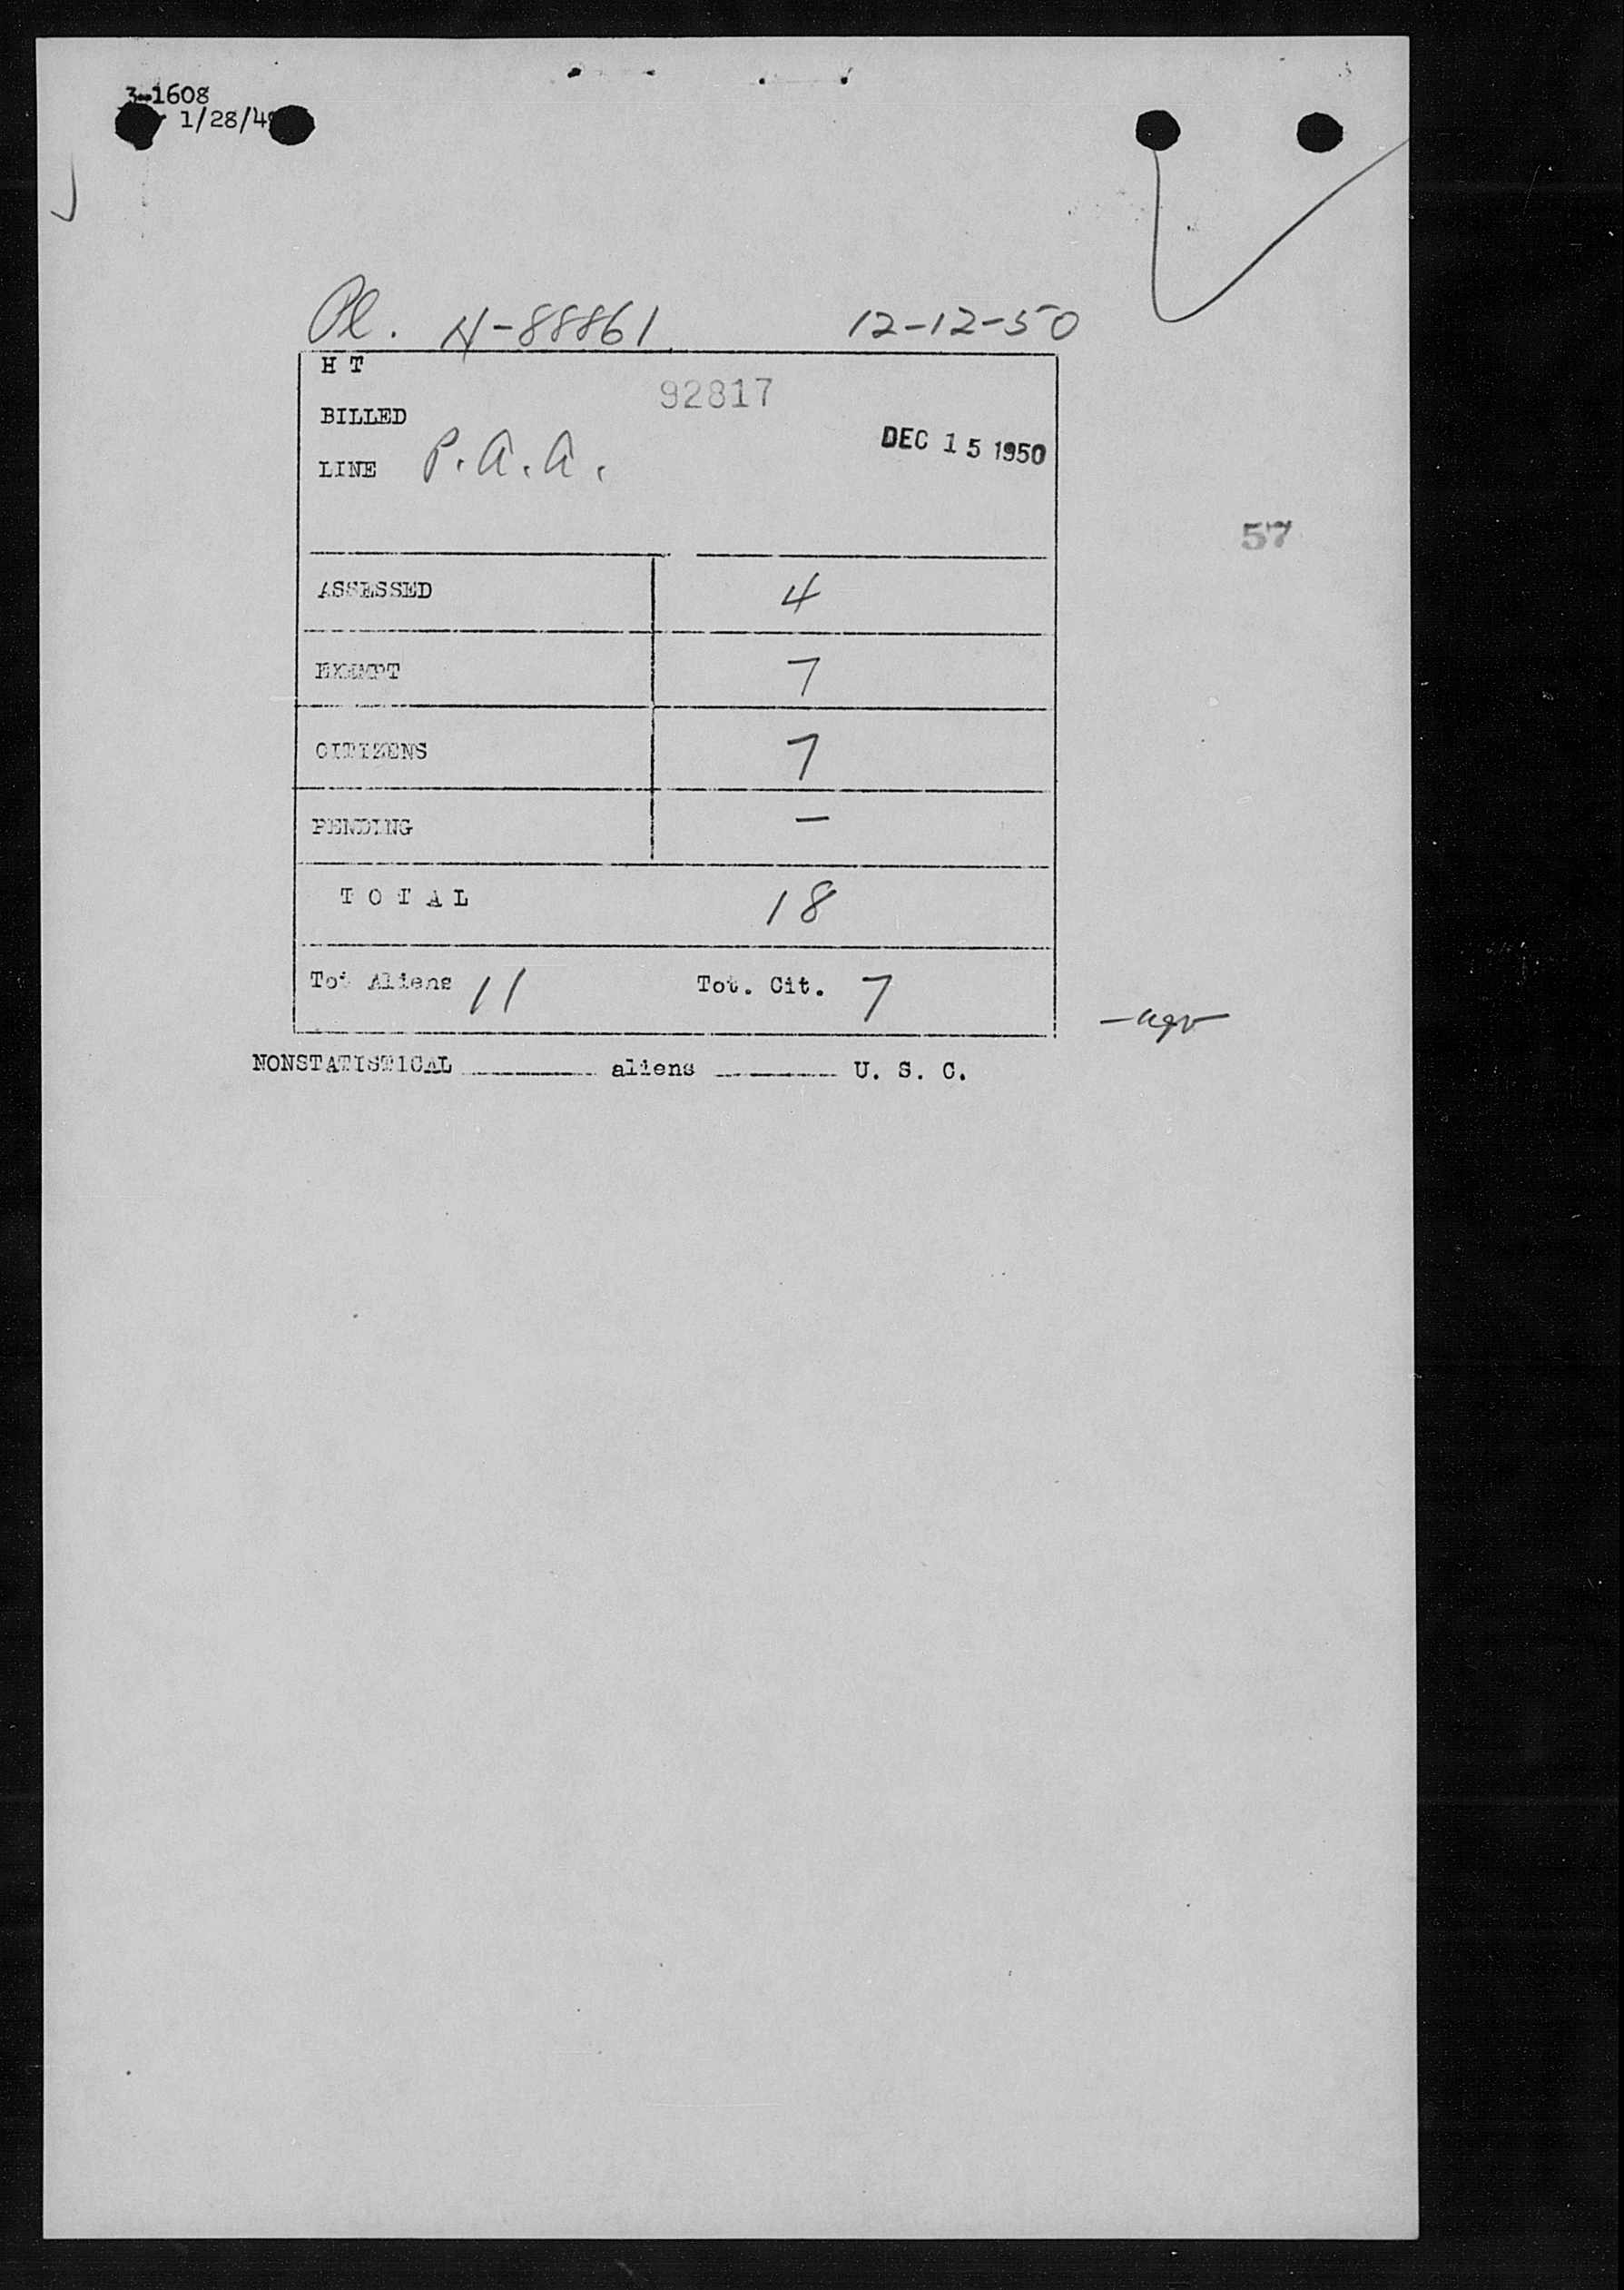 3-1608
1/28/4
Pl. N-88861 12-12-50
H T
92817
BILLED
DEC 15 1950
LINE P.A.A.
57
ASSESSED 4
EXEMPT 7
CITIZENS 7
PENDING —
TOTAL 18
Tot Aliens 11 Tot. Cit. 7
NONSTATISTICAL ________ aliens ________ U. S. C.